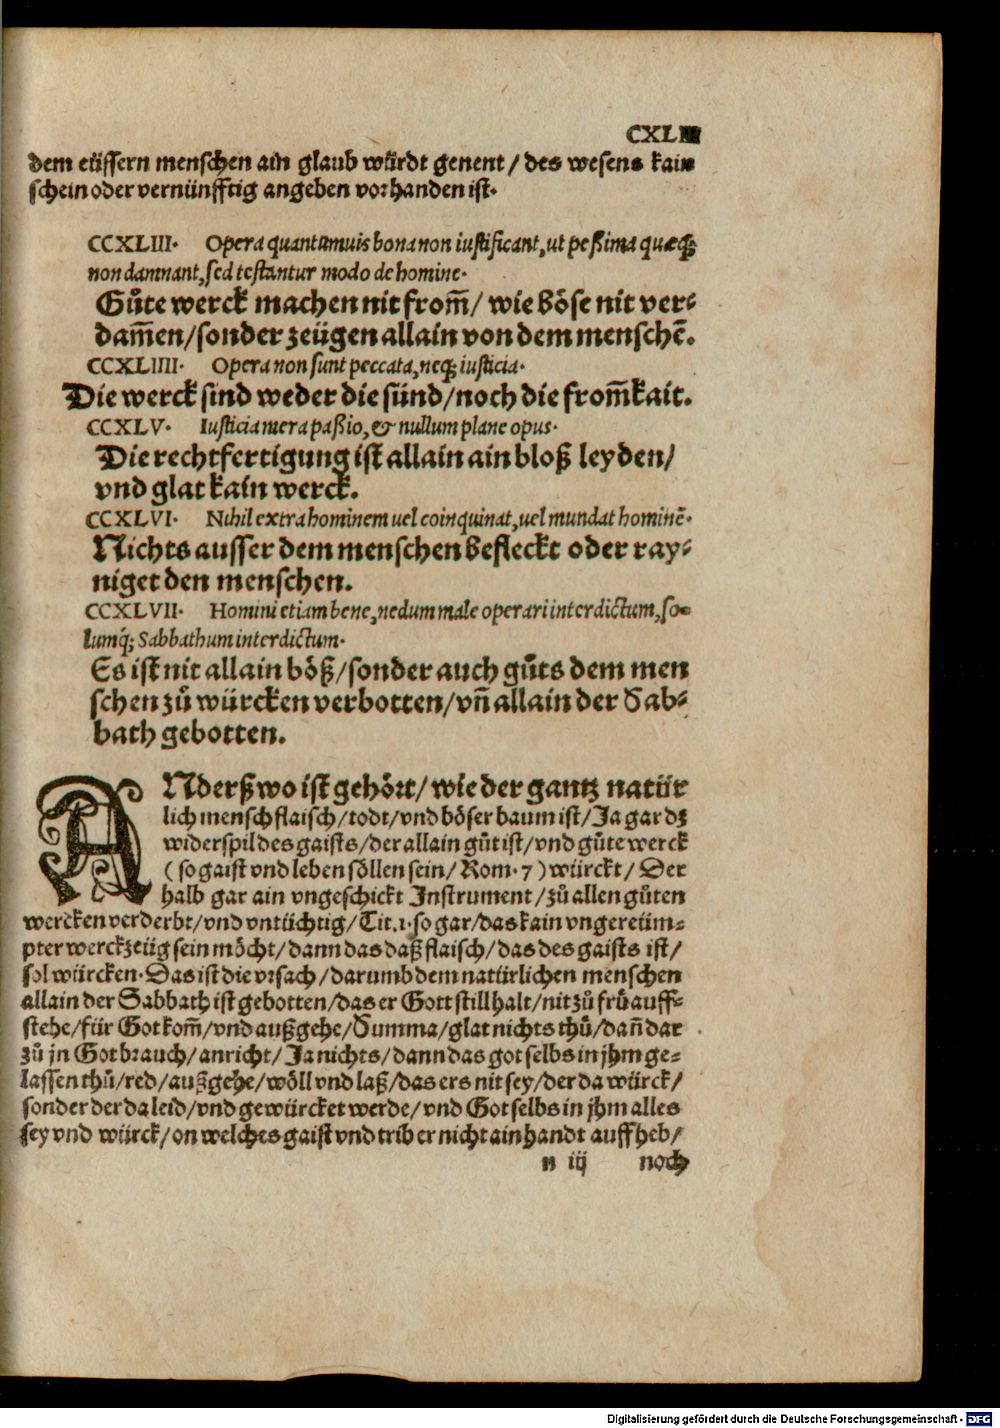 CXLIII
dem eüssern menschen ain glaub würdt genent / des wesens kain
schein oder vernünfftig angeben vorhanden ist.
CCXLIII. Opera quantumuis bona non iustificant, ut peßima quæq;
non damnant, sed testantur modo de homine.
Gůte werck machen nit from̃ / wie böse nit ver-
dam̃en / sonder zeügen allain von dem menschẽ.
CCXLIIII. Opera non sunt peccata, neq; iusticia.
Die werck sind weder die sünd / noch die from̃kait.
CCXLV. Iusticia mera paßio, & nullum plane opus.
Die rechtfertigung ist allain ain bloß leyden /
vnd glat kain werck.
CCXLVI. Nihil extra hominem uel coinquinat, uel mundat hominẽ.
Nichts ausser dem menschen befleckt oder ray-
niget den menschen.
CCXLVII. Homini etiam bene, nedum male operari interdictum, so-
lumq́; Sabbathum interdictum.
Es ist nit allain böß / sonder auch gůts dem men
schen zů würcken verbotten / vñ allain der Sab-
bath gebotten.
ANderßwo ist gehört / wie der gantz natür
lich mensch flaisch / todt / vnd böser baum ist / Ja gar dz
widerspil des gaists / der allain gůt ist / vnd gůte werck
( so gaist vnd leben söllen sein / Rom. 7 ) würckt / Der
halb gar ain vngeschickt Instrument / zů allen gůten
wercken verderbt / vnd vntüchtig / Tit. 1. so gar / das kain vngereüm-
pter werckzeüg sein möcht / dann das daß flaisch / das des gaists ist /
sol würcken. Das ist die vrsach / darumb dem natürlichen menschen
allain der Sabbath ist gebotten / das er Gott still halt / nit zů frů auff-
stehe / für Got kom̃ / vnd außgehe / Summa / glat nichts thů / dañ dar
zů jn Got brauch / anricht / Ja nichts / dann das got selbs in jhm ge-
lassen thů / red / außgehe / wöll vnd laß / das ers nit sey / der da würck /
sonder der da leid / vnd gewürcket werde / vnd Got selbs in jhm alles
sey vnd würck / on welches gaist vnd trib er nicht ain handt auff heb /
n iij noch
Digitalisierung gefördert durch die Deutsche Forschungsgemeinschaft - DFG